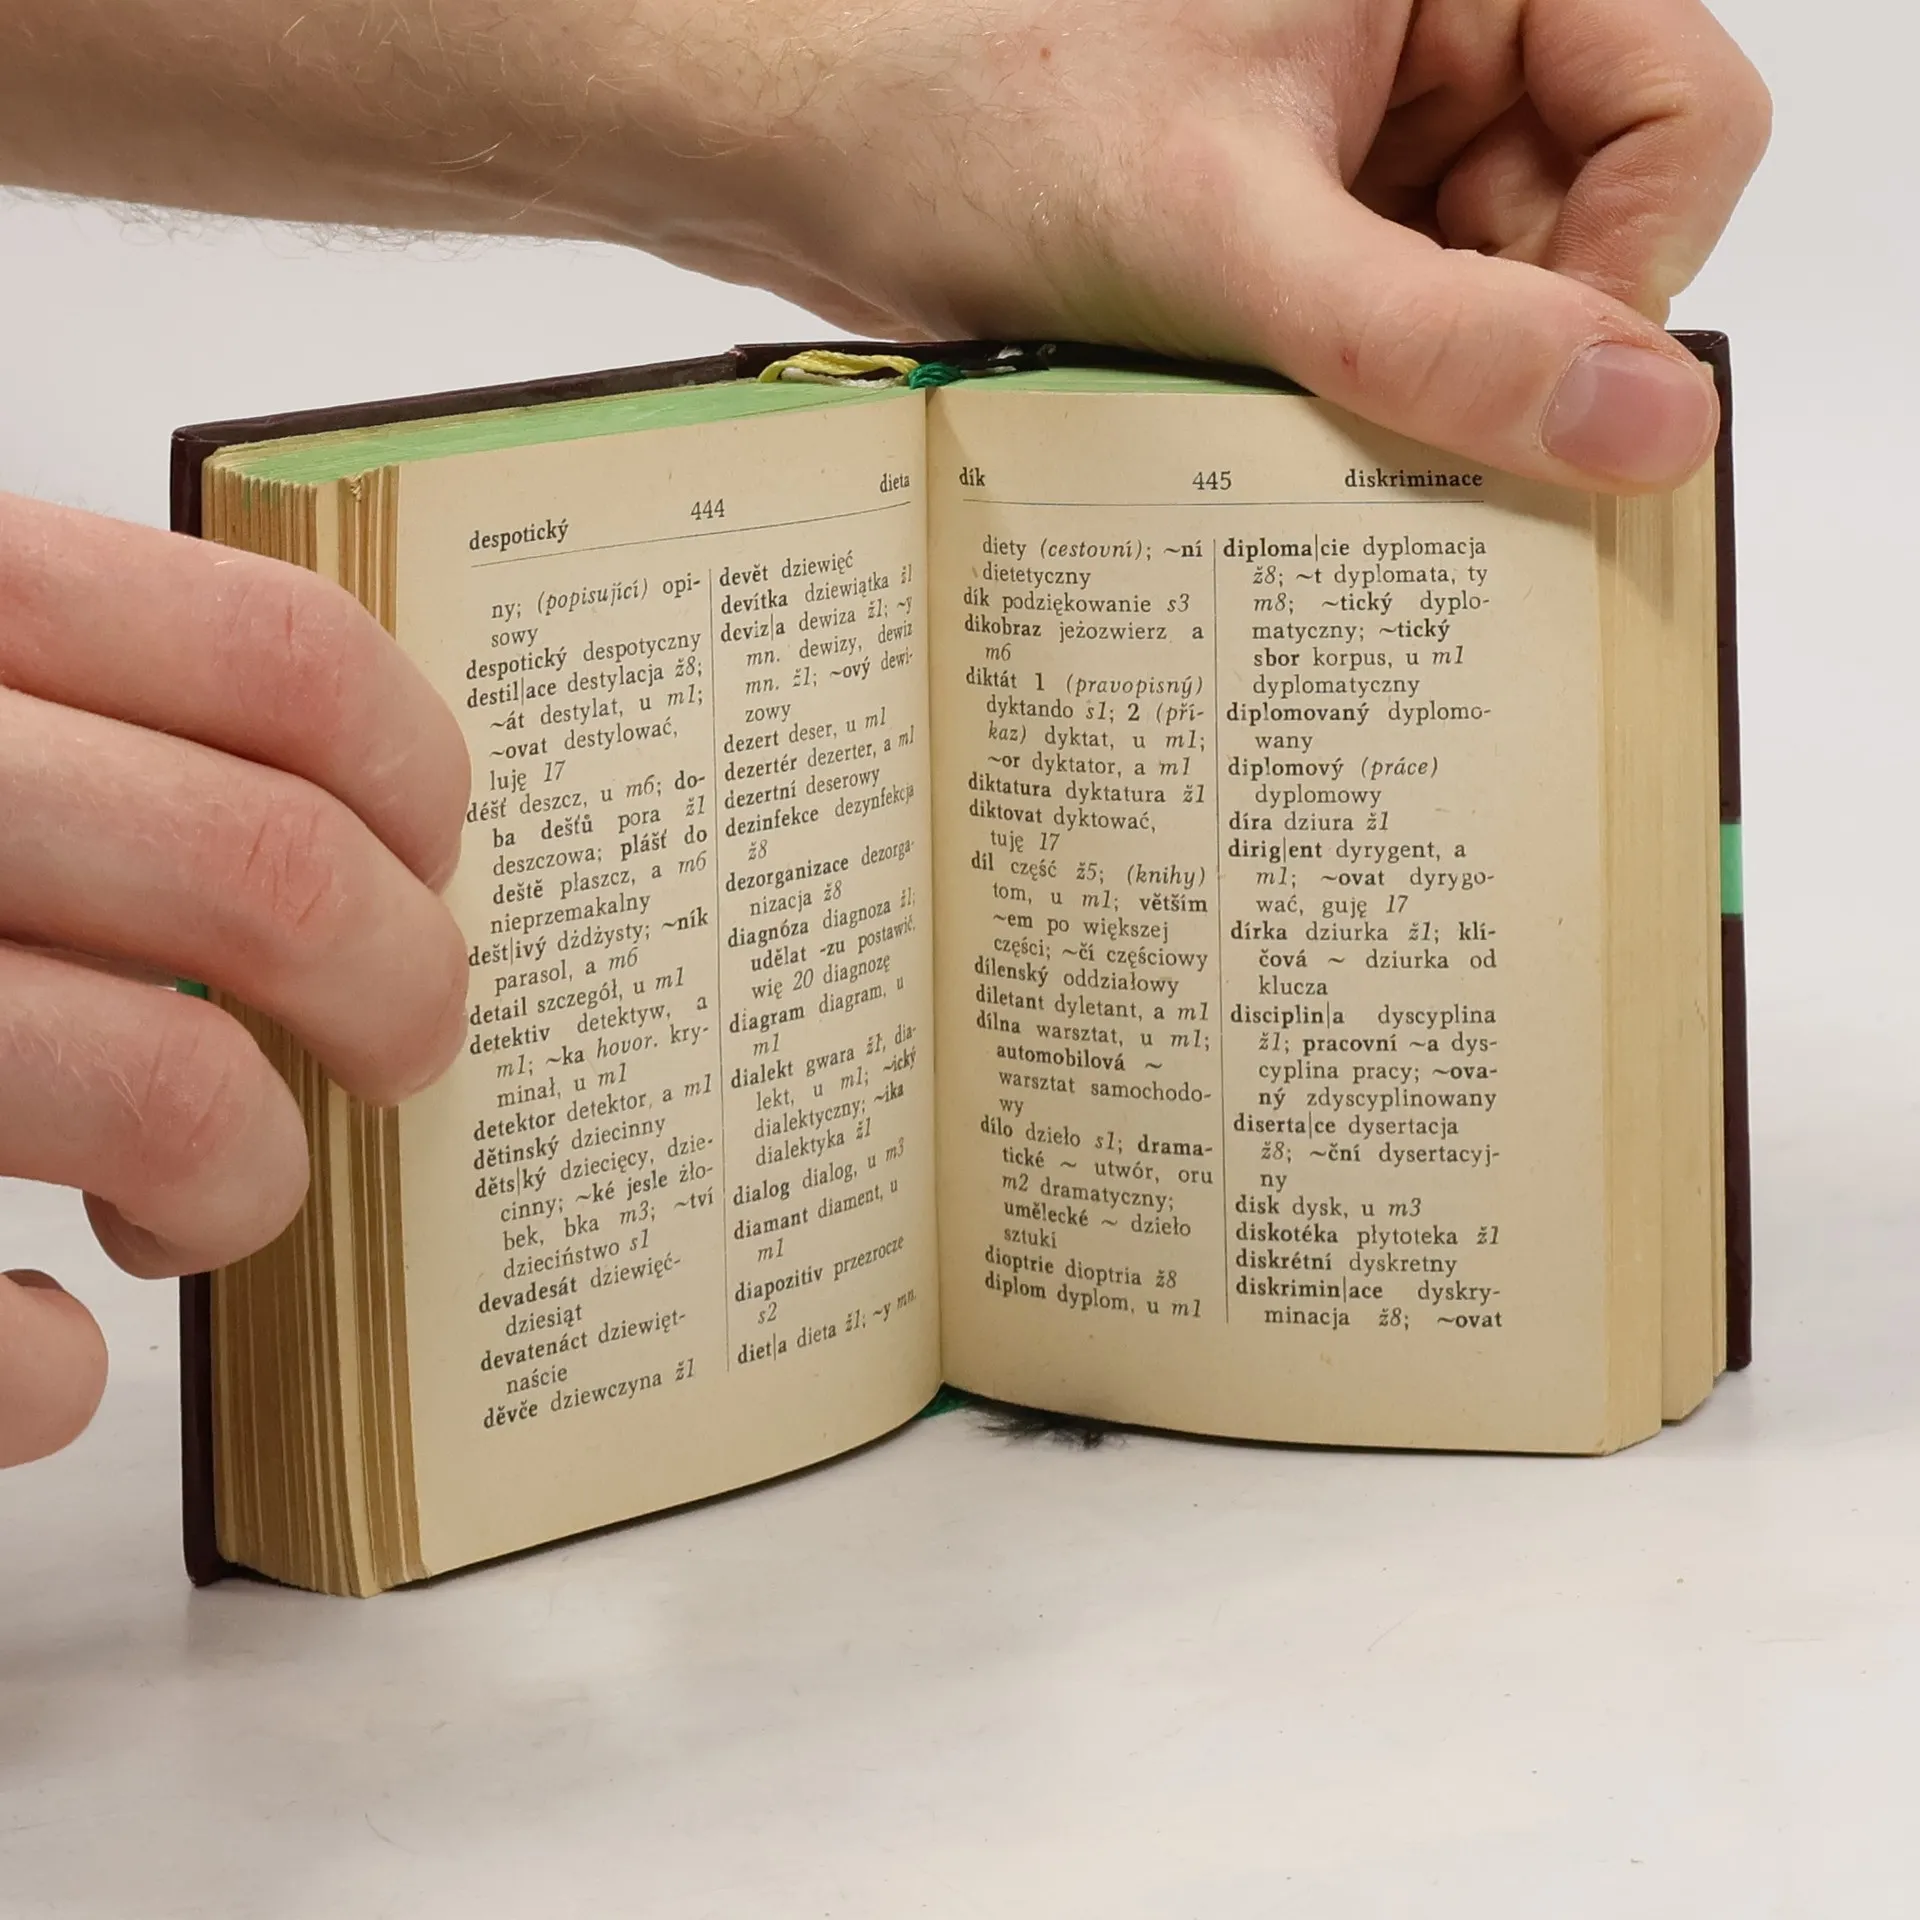 despotický 444 dieta
ny; (popisující) opi-
sowy
despotický despotyczny
destil|ace destylacja ž8;
~át destylat, u m1;
~ovat destylować,
luję 17
déšť deszcz, u m6; do-
ba dešťů pora ž1
deszczowa; plášť do
deště płaszcz, a m6
nieprzemakalny
dešt|ivý dżdżysty; ~ník
parasol, a m6
detail szczegół, u m1
detektiv detektyw, a
m1; ~ka hovor. kry-
minał, u m1
detektor detektor, a m1
dětinský dziecinny
děts|ký dziecięcy, dzie-
cinny; ~ké jesle żło-
bek, bka m3; ~tví
dzieciństwo s1
devadesát dziewięć-
dziesiąt
devatenáct dziewięt-
naście
děvče dziewczyna ž1
devět dziewięć
devítka dziewiątka ž1
deviz|a dewiza ž1; ~y
mn. dewizy, dewiz
mn. ž1; ~ový dewi-
zowy
dezert deser, u m1
dezertér dezerter, a m1
dezertní deserowy
dezinfekce dezynfekcja
ž8
dezorganizace dezorga-
nizacja ž8
diagnóza diagnoza ž1;
udělat -zu postawić,
wię 20 diagnozę
diagram diagram, u
m1
dialekt gwara ž1, dia-
lekt, u m1; ~ický
dialektyczny; ~ika
dialektyka ž1
dialog dialog, u m3
diamant diament, u
m1
diapozitiv przezrocze
s2
diet|a dieta ž1; ~y mn.
dík 445 diskriminace
diety (cestovní); ~ní
dietetyczny
dík podziękowanie s3
dikobraz jeżozwierz, a
m6
diktát 1 (pravopisný)
dyktando s1; 2 (pří-
kaz) dyktat, u m1;
~or dyktator, a m1
diktatura dyktatura ž1
diktovat dyktować,
tuję 17
díl część ž5; (knihy)
tom, u m1; větším
~em po większej
części; ~čí częściowy
dílenský oddziałowy
diletant dyletant, a m1
dílna warsztat, u m1;
automobilová ~
warsztat samochodo-
wy
dílo dzieło s1; drama-
tické ~ utwór, oru
m2 dramatyczny;
umělecké ~ dzieło
sztuki
dioptrie dioptria ž8
diplom dyplom, u m1
diploma|cie dyplomacja
ž8; ~t dyplomata, ty
m8; ~tický dyplo-
matyczny; ~tický
sbor korpus, u m1
dyplomatyczny
diplomovaný dyplomo-
wany
diplomový (práce)
dyplomowy
díra dziura ž1
dirig|ent dyrygent, a
m1; ~ovat dyrygo-
wać, guję 17
dírka dziurka ž1; klí-
čová ~ dziurka od
klucza
disciplin|a dyscyplina
ž1; pracovní ~a dys-
cyplina pracy; ~ova-
ný zdyscyplinowany
diserta|ce dysertacja
ž8; ~ční dysertacyj-
ny
disk dysk, u m3
diskotéka płytoteka ž1
diskrétní dyskretny
diskrimin|ace dyskry-
minacja ž8; ~ovat